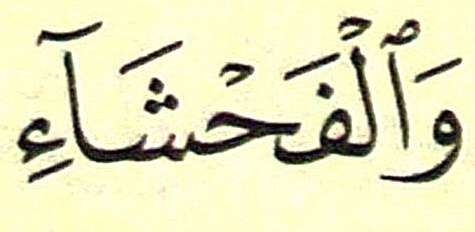 وَٱلْفَحْشَآءِ